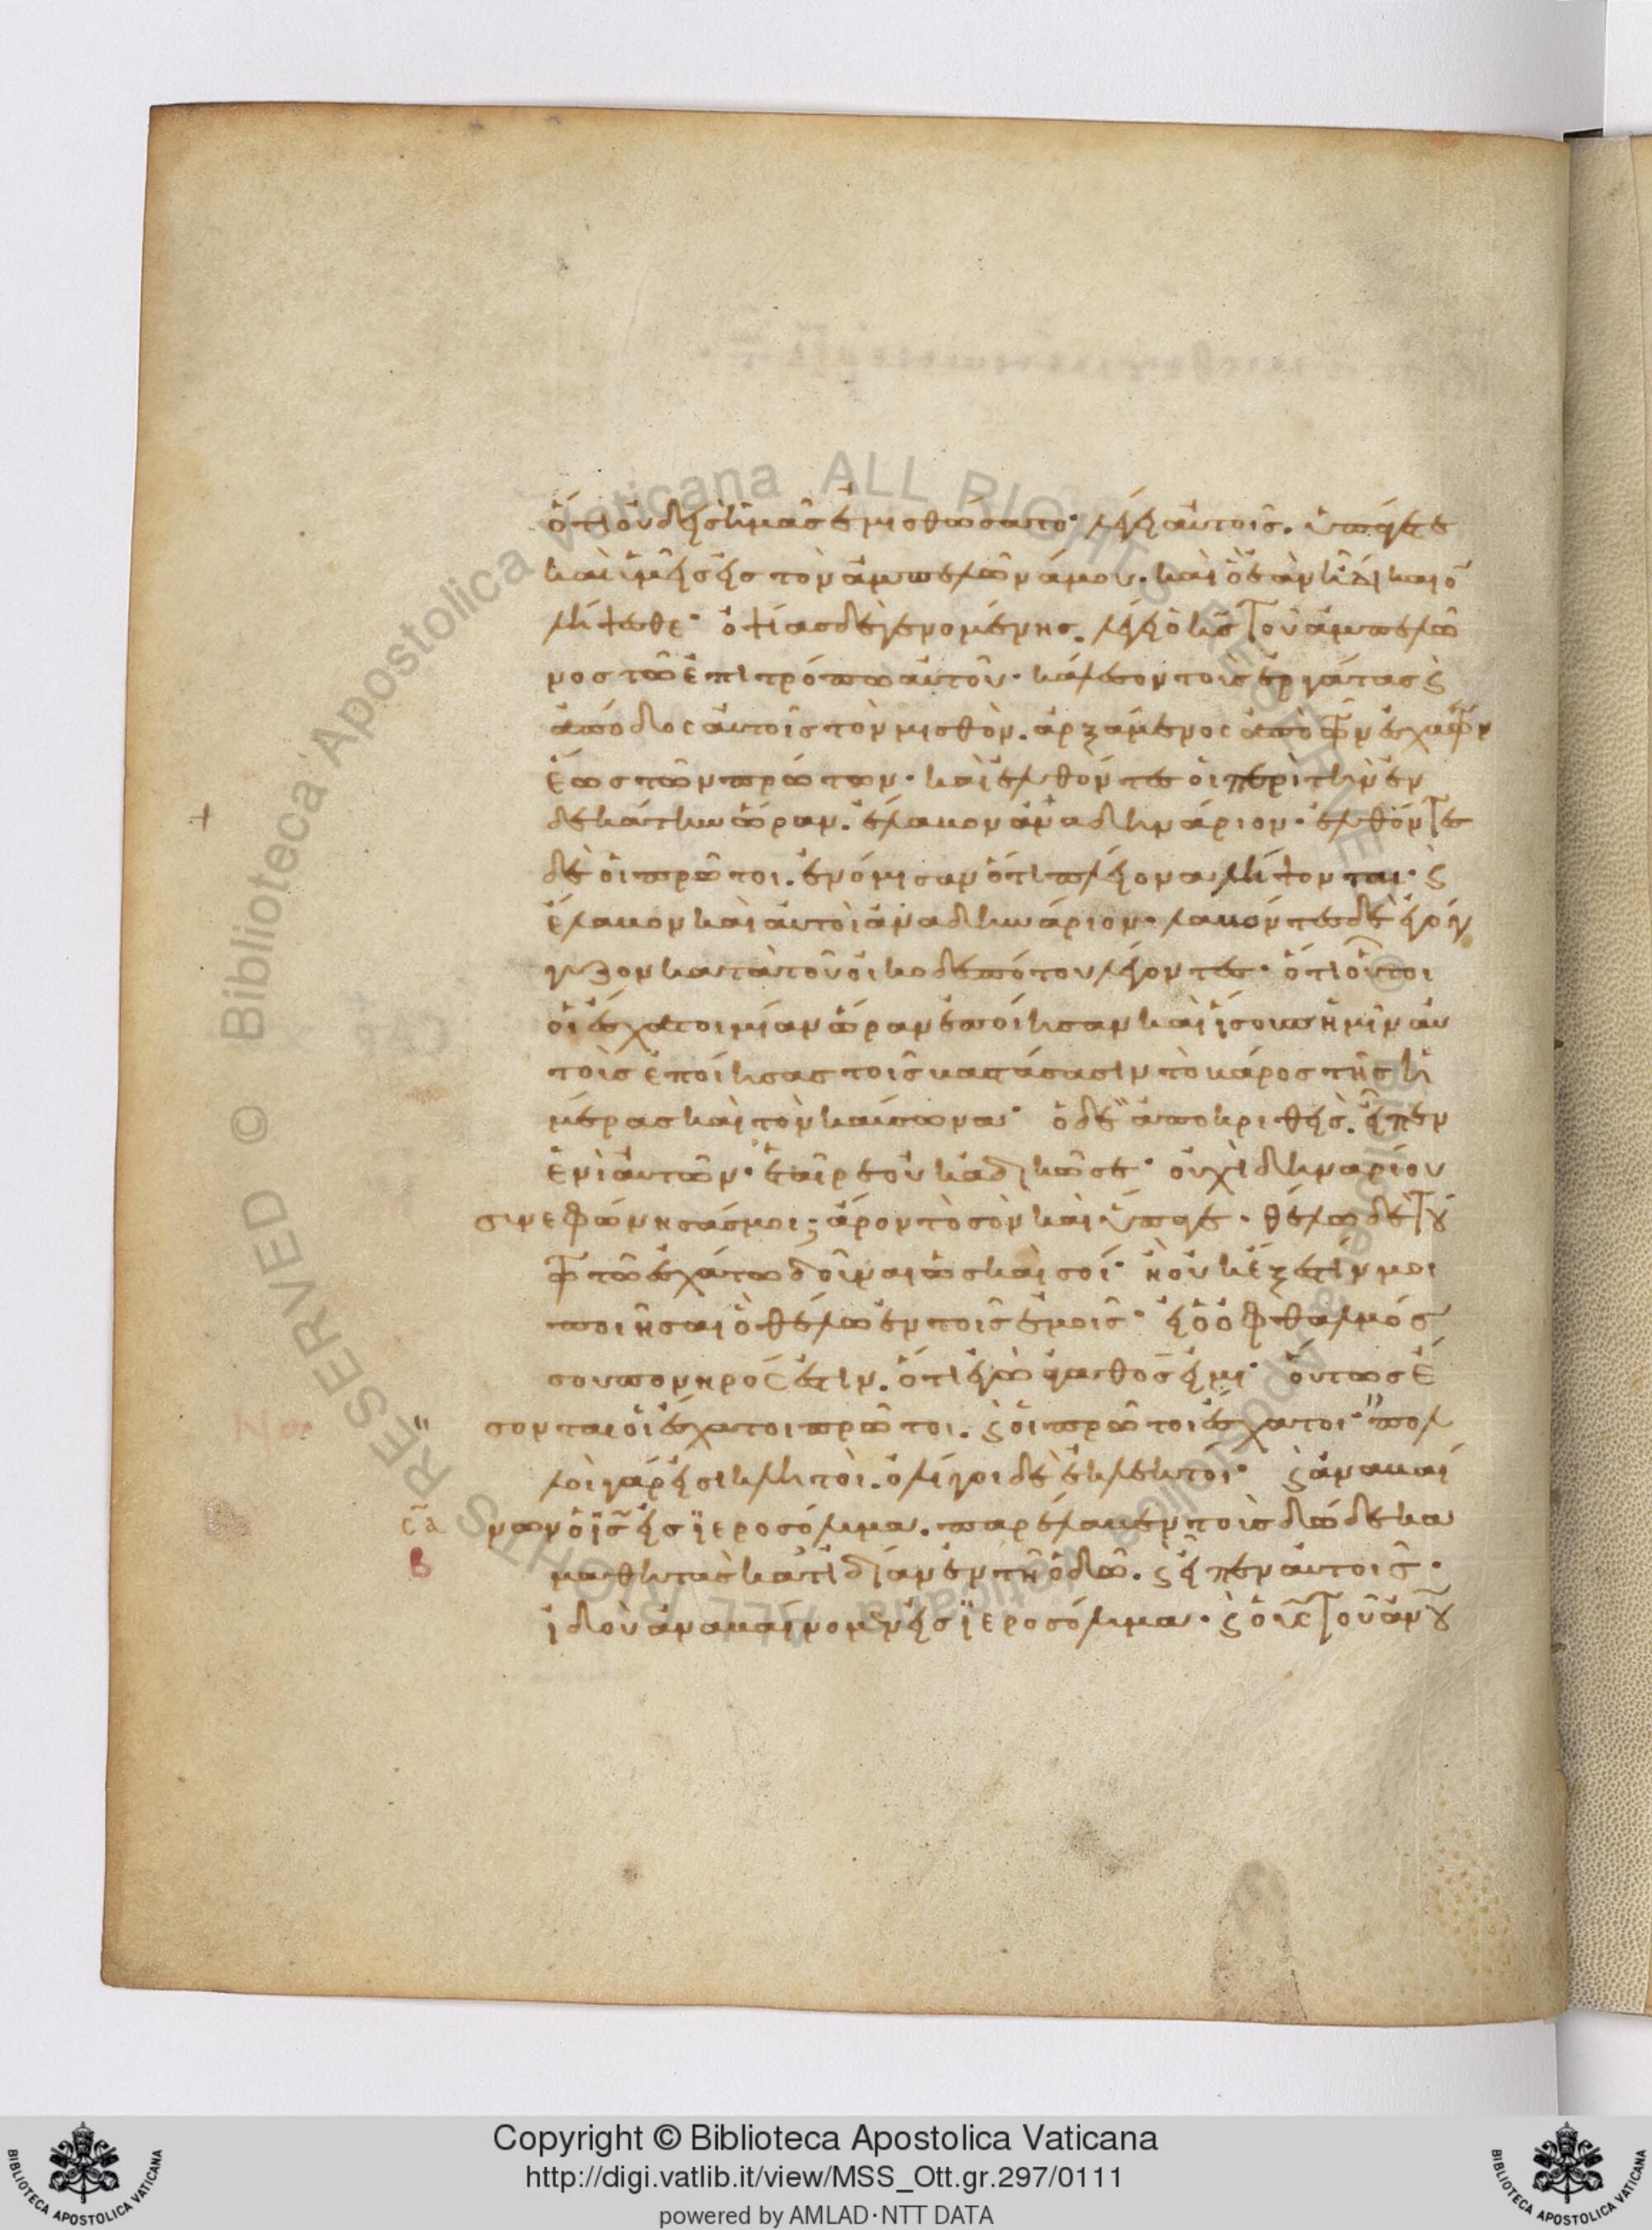 ὅτι οὐδεὶς ἡμᾶς ἐμισθώσατο· λέγει αὐτοῖς. ὑπάγετε
καὶ ὑμεῖς εἰς τὸν ἀμπελῶνά μου. καὶ ὃ ἐὰν ᾖ δίκαιο̅
λήψεσθε· ὀψίας δὲ γενομένης. λέγει ὁ κ̅ς̅ τοῦ ἀμπελῶ
νος τῶ ἐπιτρόπω αὐτοῦ· κάλεσον τοὺς ἐργάτας ϗ
ἀπόδος αὐτοῖς τὸν μισθὸν. ἀρξάμενος ἀπὸ τῶν ἐσχάτων
ἕως τῶν πρώτων· καὶ ἐλθόντες οἱ περὶ τὴν ἑν
δεκάτην ὥραν. ἔλαβον ἀνὰ δηνάριον· ἐλθόντες
δὲ οἱ πρῶτοι. ἐνόμισαν ὅτι πλείονα λήψονται· ϗ
ἔλαβον καὶ αὐτοὶ ἀνὰ δηνάριον· λαβόντες δὲ ἐγόγ
γυζον κατὰ τοῦ οἰκοδεσπότου λέγοντες· ὅτι οὗτοι
οἱ ἔσχατοι μίαν ὥραν ἐποίησαν καὶ ἴσους ἡμῖν αὐ
τοὺς ἐποίησας τοῖς βαστάσασιν τὸ βάρος τῆς ἡ
μέρας καὶ τὸν καύσωνα· ὁ δὲ ἀποκριθεὶς. εἶπεν
ἑνὶ αὐτῶν· ἑταῖρε οὐκ ἀδικῶ σε· οὐχὶ δηναρίου
συνεφώνησάς μοι; ἆρον τὸ σὸν καὶ ὕπαγε· θέλω δὲ τού
τω τῶ ἐσχάτω δοῦναι ὡς καὶ σοί· ἢ οὐκ ἔξεστίν μοι
ποιῆσαι ὃ θέλω ἐν τοῖς ἐμοῖς· εἰ ὁ ὀφθαλμός
σου πονηρός ἐστιν. ὅτι ἐγὼ ἀγαθός εἰμι· οὕτως ἔ
σονται οἱ ἔσχατοι πρῶτοι. ϗ οἱ πρῶτοι ἔσχατοι· πολ
λοὶ γάρ εἰσι κλητοὶ. ὀλίγοι δὲ ἐκλεκτοί· ϗ ἀναβαί
σ̅α̅ νων ὁ ι̅ς̅ εἰς ἱεροσόλυμα. παρέλαβεν τοὺς δώδεκα
β μαθητὰς κατ' ἰδίαν ἐν τῆ ὁδῶ. ϗ εἶπεν αὐτοῖς·
ἰδοὺ ἀναβαίνομεν εἰς ἱεροσόλυμα· ϗ ὁ υ̅ς̅ τοῦ ἀν̅ου
Copyright © Biblioteca Apostolica Vaticana
http://digi.vatlib.it/view/MSS_Ott.gr.297/0111
powered by AMLAD·NTT DATA